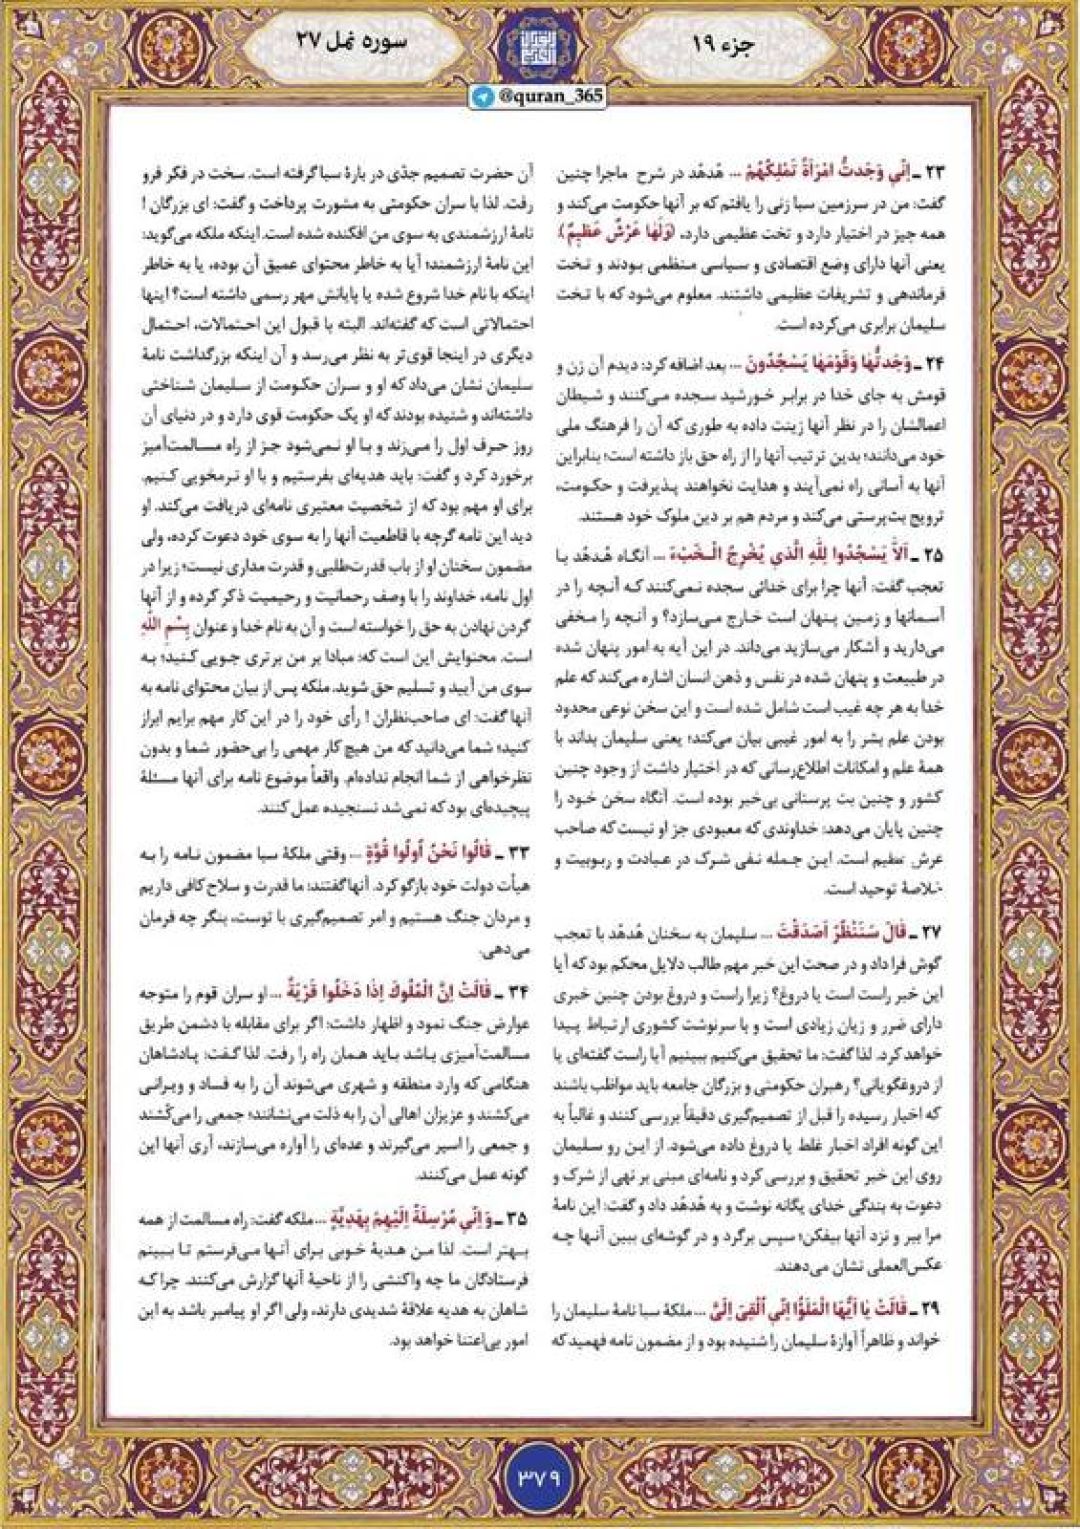 جزء ۱۹
سوره نمل ۲۷
@quran_365
۲۳ ـ اِنّي وَجَدتُّ امْرَاَةً تَمْلِكُهُمْ ... هُدهُد در شرح ماجرا چنین
گفت: من در سرزمین سبا زنی را یافتم که بر آنها حکومت می‌کند و
همه چیز در اختیار دارد و تخت عظیمی دارد، ﴿وَلَها عَرْشٌ عَظيمٌ﴾
یعنی آنها دارای وضع اقتصادی و سیاسی منظمی بودند و تخت
فرماندهی و تشریفات عظیمی داشتند. معلوم می‌شود که با تخت
سلیمان برابری می‌کرده است.
۲۴ ـ وَجَدتُّها وَقَوْمَها يَسْجُدُونَ ... بعد اضافه کرد: دیدم آن زن و
قومش به جای خدا در برابر خورشید سجده می‌کنند و شیطان
اعمالشان را در نظر آنها زینت داده به طوری که آن را فرهنگ ملی
خود می‌دانند؛ بدین ترتیب آنها را از راه حق باز داشته است؛ بنابراین
آنها به آسانی راه نمی‌آیند و هدایت نخواهند پذیرفت و حکومت،
ترویج بت‌پرستی می‌کند و مردم هم بر دین ملوک خود هستند.
۲۵ ـ اَلّا يَسْجُدُوا لِلّهِ الَّذي يُخْرِجُ الْخَبْءَ ... آنگاه هُدهُد با
تعجب گفت: آنها چرا برای خدائی سجده نمی‌کنند که آنچه را در
آسمانها و زمین پنهان است خارج می‌سازد؟ و آنچه را مخفی
می‌دارید و آشکار می‌سازید می‌داند. در این آیه به امور پنهان شده
در طبیعت و پنهان شده در نفس و ذهن انسان اشاره می‌کند که علم
خدا به هر چه غیب است شامل شده است و این سخن نوعی محدود
بودن علم بشر را به امور غیبی بیان می‌کند؛ یعنی سلیمان بداند با
همهٔ علم و امکانات اطلاع‌رسانی که در اختیار داشت از وجود چنین
کشور و چنین بت پرستانی بی‌خبر بوده است. آنگاه سخن خود را
چنین پایان می‌دهد: خداوندی که معبودی جز او نیست که صاحب
عرش عظیم است. این جمله نفی شرک در عبادت و ربوبیت و
خلاصهٔ توحید است.
۲۷ ـ قالَ سَنَنْظُرُ اَصَدَقْتَ ... سلیمان به سخنان هُدهُد با تعجب
گوش فرا داد و در صحت این خبر مهم طالب دلایل محکم بود که آیا
این خبر راست است یا دروغ؟ زیرا راست و دروغ بودن چنین خبری
دارای ضرر و زیان زیادی است و با سرنوشت کشوری ارتباط پیدا
خواهد کرد. لذا گفت: ما تحقیق می‌کنیم ببینیم آیا راست گفته‌ای یا
از دروغگویانی؟ رهبران حکومتی و بزرگان جامعه باید مواظب باشند
که اخبار رسیده را قبل از تصمیم‌گیری دقیقاً بررسی کنند و غالباً به
این گونه افراد اخبار غلط یا دروغ داده می‌شود. از این رو سلیمان
روی این خبر تحقیق و بررسی کرد و نامه‌ای مبنی بر نهی از شرک و
دعوت به بندگی خدای یگانه نوشت و به هُدهُد داد و گفت: این نامهٔ
مرا ببر و نزد آنها بیفکن؛ سپس برگرد و در گوشه‌ای ببین آنها چه
عکس‌العملی نشان می‌دهند.
۲۹ ـ قالَتْ يا اَيُّهَا الْمَلَؤُا اِنّي اُلْقِيَ اِلَيَّ ... ملکهٔ سبا نامهٔ سلیمان را
خواند و ظاهراً آوازهٔ سلیمان را شنیده بود و از مضمون نامه فهمید که
آن حضرت تصمیم جدّی در بارهٔ سبا گرفته است. سخت در فکر فرو
رفت. لذا با سران حکومتی به مشورت پرداخت و گفت: ای بزرگان !
نامهٔ ارزشمندی به سوی من افکنده شده است. اینکه ملکه می‌گوید:
این نامهٔ ارزشمند؛ آیا به خاطر محتوای عمیق آن بوده، یا به خاطر
اینکه با نام خدا شروع شده یا پایانش مهر رسمی داشته است؟ اینها
احتمالاتی است که گفته‌اند. البته با قبول این احتمالات، احتمال
دیگری در اینجا قوی‌تر به نظر می‌رسد و آن اینکه بزرگداشت نامهٔ
سلیمان نشان می‌داد که او و سران حکومت از سلیمان شناختی
داشته‌اند و شنیده بودند که او یک حکومت قوی دارد و در دنیای آن
روز حرف اول را می‌زند و با او نمی‌شود جز از راه مسالمت‌آمیز
برخورد کرد و گفت: باید هدیه‌ای بفرستیم و با او نرمخویی کنیم.
برای او مهم بود که از شخصیت معتبری نامه‌ای دریافت می‌کند. او
دید این نامه گرچه با قاطعیت آنها را به سوی خود دعوت کرده، ولی
مضمون سخنان او از باب قدرت‌طلبی و قدرت مداری نیست؛ زیرا در
اول نامه، خداوند را با وصف رحمانیت و رحیمیت ذکر کرده و از آنها
گردن نهادن به حق را خواسته است و آن به نام خدا و عنوان بِسْمِ اللّهِ
است. محتوایش این است که: مبادا بر من برتری جویی کنید؛ به
سوی من آیید و تسلیم حق شوید. ملکه پس از بیان محتوای نامه به
آنها گفت: ای صاحب‌نظران ! رأی خود را در این کار مهم برایم ابراز
کنید؛ شما می‌دانید که من هیچ کار مهمی را بی‌حضور شما و بدون
نظرخواهی از شما انجام نداده‌ام. واقعاً موضوع نامه برای آنها مسئلهٔ
پیچیده‌ای بود که نمی‌شد نسنجیده عمل کنند.
۳۳ ـ قالُوا نَحْنُ اُولُوا قُوَّةٍ ... وقتی ملکهٔ سبا مضمون نامه را به
هیأت دولت خود بازگو کرد. آنها گفتند: ما قدرت و سلاح کافی داریم
و مردان جنگ هستیم و امر تصمیم‌گیری با توست، بنگر چه فرمان
می‌دهی.
۳۴ ـ قالَتْ اِنَّ الْمُلُوكَ اِذا دَخَلُوا قَرْيَةً ... او سران قوم را متوجه
عوارض جنگ نمود و اظهار داشت: اگر برای مقابله با دشمن طریق
مسالمت‌آمیزی باشد باید همان راه را رفت. لذا گفت: پادشاهان
هنگامی که وارد منطقه و شهری می‌شوند آن را به فساد و ویرانی
می‌کشند و عزیزان اهالی آن را به ذلت می‌نشانند؛ جمعی را می‌کُشند
و جمعی را اسیر می‌گیرند و عده‌ای را آواره می‌سازند، آری آنها این
گونه عمل می‌کنند.
۳۵ ـ وَ اِنّي مُرْسِلَةٌ اِلَيْهِمْ بِهَدِيَّةٍ ... ملکه گفت: راه مسالمت از همه
بهتر است. لذا من هدیهٔ خوبی برای آنها می‌فرستم تا ببینم
فرستادگان ما چه واکنشی را از ناحیهٔ آنها گزارش می‌کنند. چرا که
شاهان به هدیه علاقهٔ شدیدی دارند، ولی اگر او پیامبر باشد به این
امور بی‌اعتنا خواهد بود.
۳۷۹